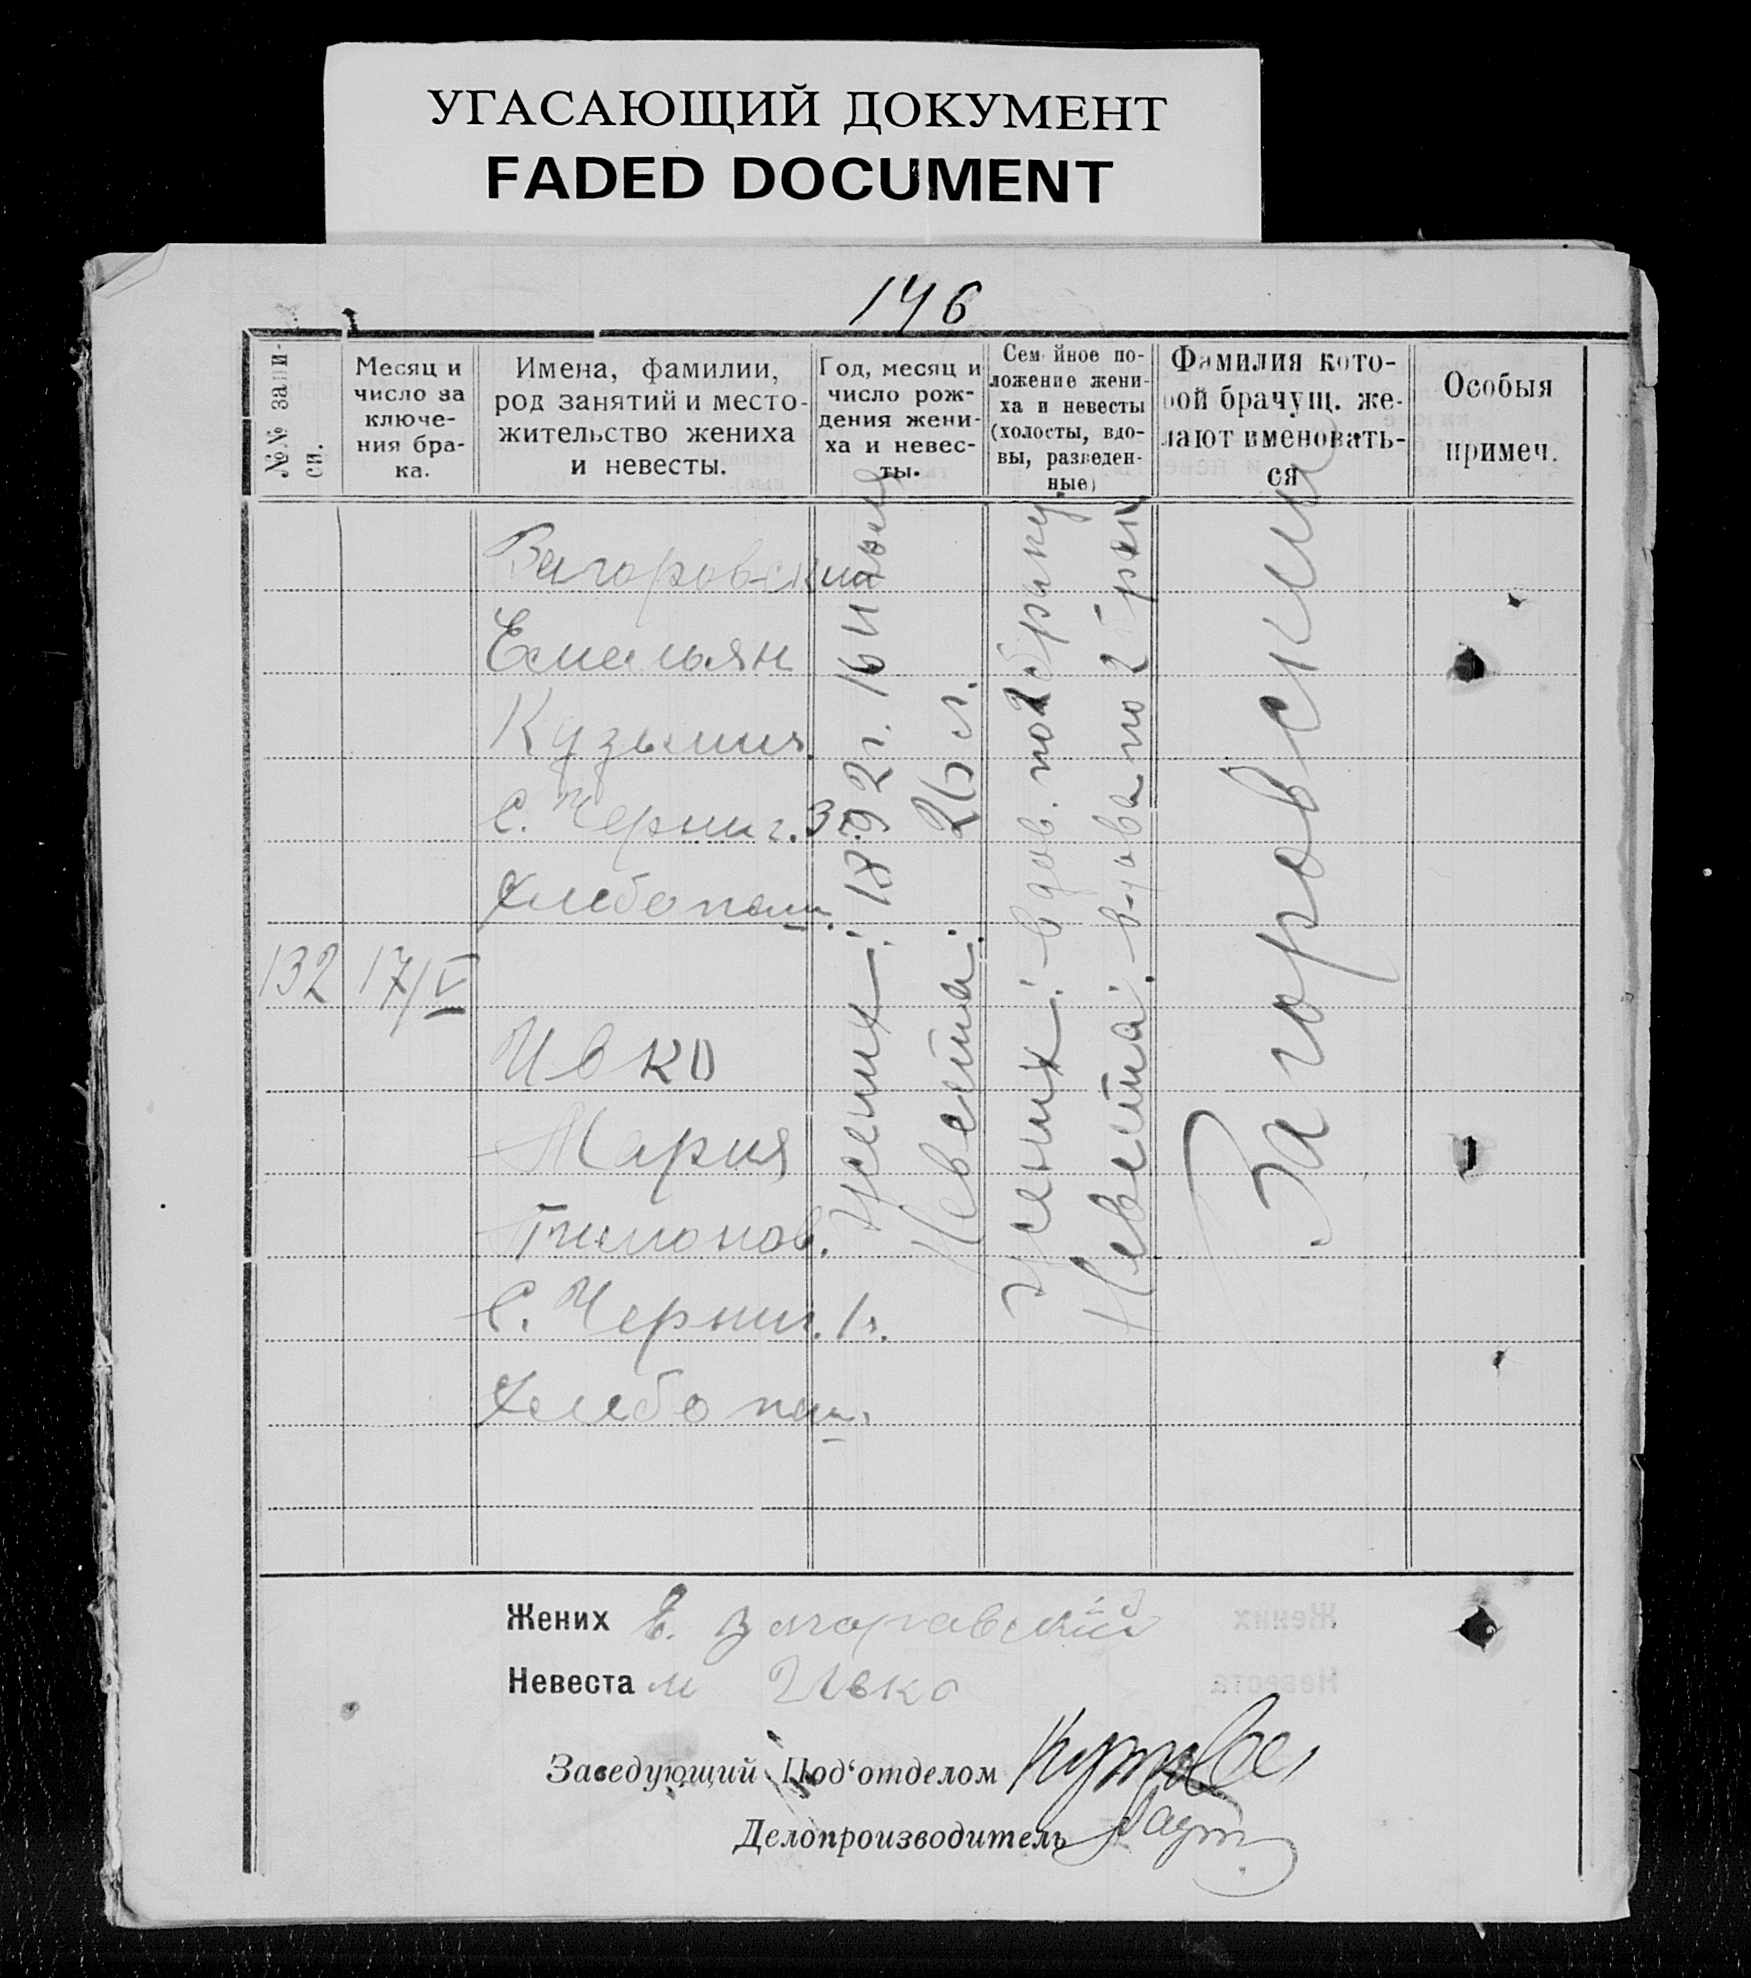 УГАСАЮЩИЙ ДОКУМЕНТ
FADED DOCUMENT
146
№№ запи-
си.
Месяц и
число за
ключе-
ния бра-
ка.
Имена, фамилии,
род занятий и место-
жительство жениха
и невесты.
Год, месяц и
число рож-
дения жени-
ха и невес-
ты.
Семейное по-
ложение жени-
ха и невесты
(холосты, вдо-
вы, разведен-
ные)
Фамилия кото-
рой брачущ. же-
лают именовать-
ся
Особыя
примеч.
132
17/V
Загоровский
Емельян
Кузьмич.
с. Черниг. 3
Хлебопаш.
Ивко
Мария
Тимонов.
с. Черниг. 1ч.
Хлебопаш.
Жених: 1892 г. 16 Июля
Невеста: 26 л.
Жених: вдов. по 2 браку
Невеста: вдова по 2 брак
Загоровский
Жених Е. Загоравский
Невеста М Ивко
Заведующий Под‘отделом
Делопроизводитель